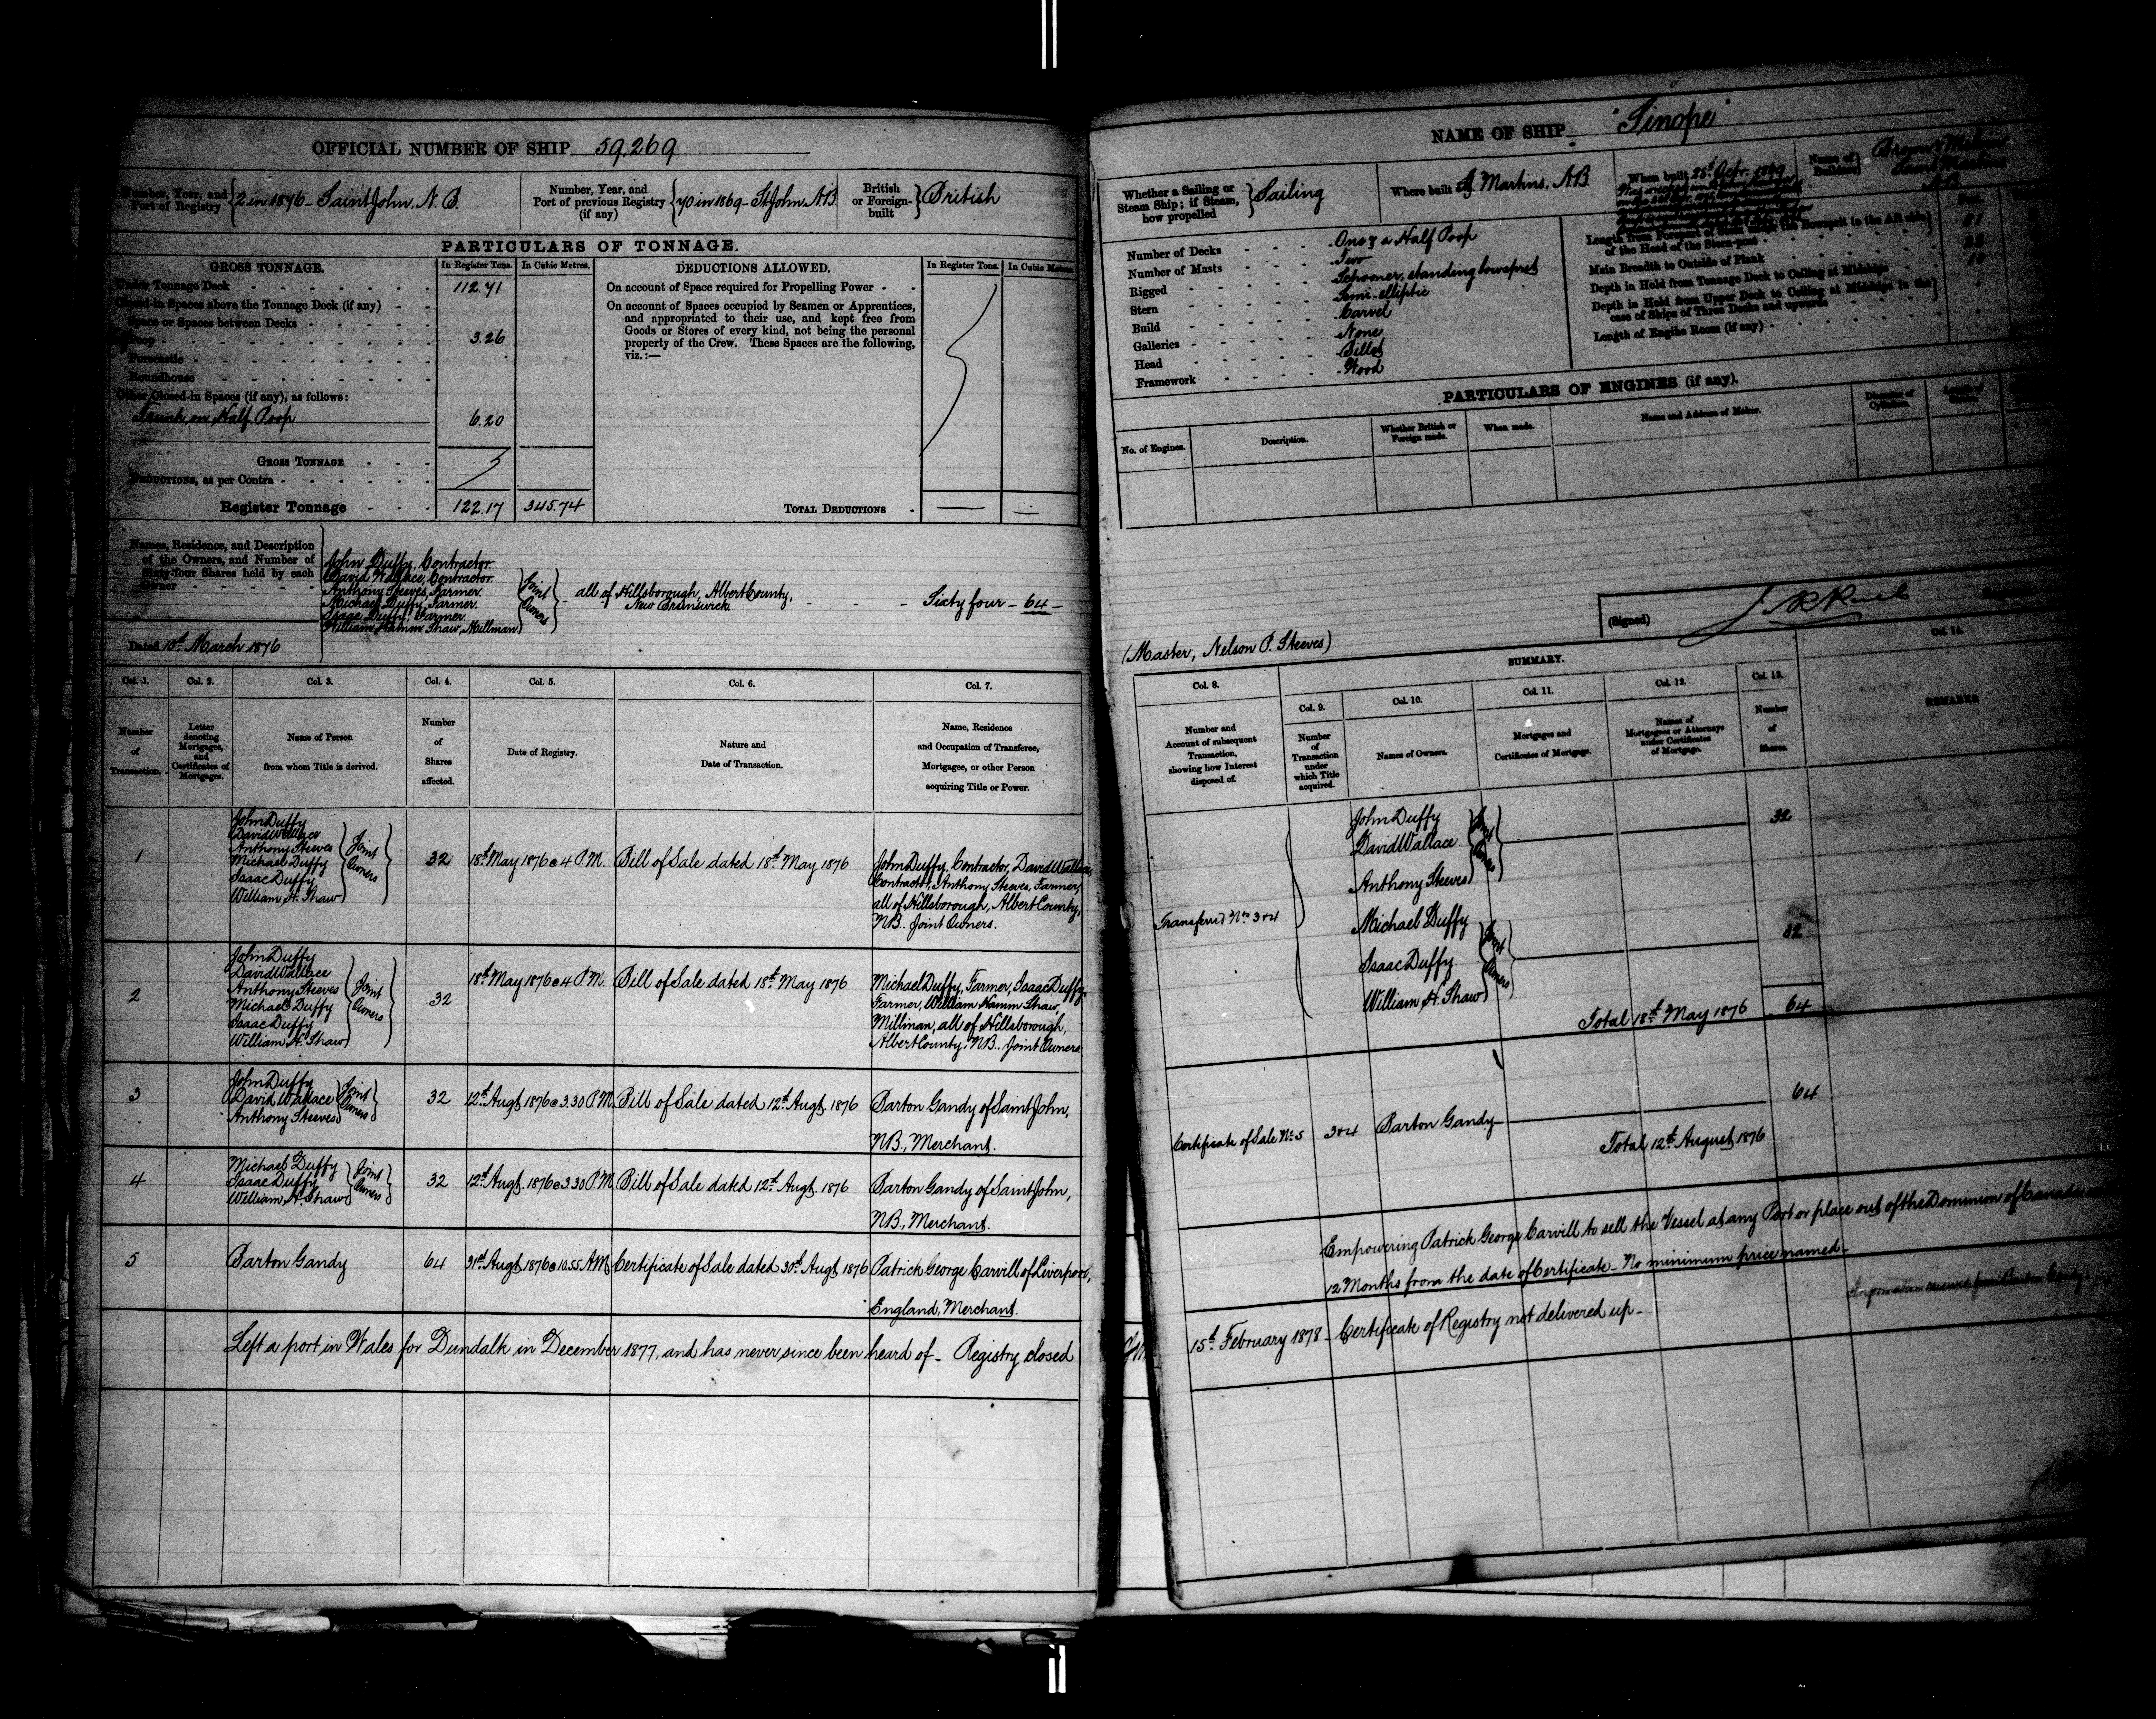 OFFICIAL NUMBER OF SHIP 59,269
Number, Year, and Port of Registry } 2 in 1876 - Saint John, N.B.
Number, Year, and Port of previous Registry (if any) } 70 in 1869 - St John, N.B.
British or Foreign-built } British
PARTICULARS OF TONNAGE.
GROSS TONNAGE. In Register Tons. In Cubic Metres.
Under Tonnage Deck 112.71
Closed-in Spaces above the Tonnage Deck (if any)
Space or Spaces between Decks
Poop 3.26
Forecastle
Roundhouse
Other Closed-in Spaces (if any), as follows:
Trunk on Half Poop 6.20
GROSS TONNAGE
DEDUCTIONS, as per Contra
Register Tonnage 122.17 345.74
DEDUCTIONS ALLOWED. In Register Tons. In Cubic Metres.
On account of Space required for Propelling Power
On account of Spaces occupied by Seamen or Apprentices,
and appropriated to their use, and kept free from
Goods or Stores of every kind, not being the personal
property of the Crew. These Spaces are the following,
viz.:—
TOTAL DEDUCTIONS — —
Names, Residence, and Description
of the Owners, and Number of
Sixty-four Shares held by each
Owner
John Duffy, Contractor
David Wallace, Contractor
Anthony Steeves, Farmer.
Michael Duffy, Farmer.
Isaac Duffy, Farmer.
William Hamm Shaw, Millman
Joint Owners
all of Hillsborough, Albert County,
New Brunswick
Sixty four - 64 -
Dated 10th March 1876
Col. 1. Col. 2. Col. 3. Col. 4. Col. 5. Col. 6. Col. 7.
Number of Transaction.
Letter denoting Mortgages, and Certificates of Mortgages.
Name of Person from whom Title is derived.
Number of Shares affected.
Date of Registry.
Nature and Date of Transaction.
Name, Residence and Occupation of Transferee, Mortgagee, or other Person acquiring Title or Power.
1
John Duffy
David Wallace
Anthony Steeves
Michael Duffy
Isaac Duffy
William H. Shaw
Joint Owners
32
18th May 1876 @ 4 P.M.
Bill of Sale dated 18th May 1876
John Duffy, Contractor, David Wallace,
Contractor, Anthony Steeves, Farmer,
all of Hillsborough, Albert County,
N.B. Joint Owners.
2
John Duffy
David Wallace
Anthony Steeves
Michael Duffy
Isaac Duffy
William H. Shaw
Joint Owners
32
18th May 1876 @ 4 P.M.
Bill of Sale dated 18th May 1876
Michael Duffy, Farmer, Isaac Duffy,
Farmer, William Hamm Shaw,
Millman, all of Hillsborough,
Albert County, N.B. Joint Owners
3
John Duffy
David Wallace
Anthony Steeves
Joint Owners
32
12th Augt 1876 @ 3.30 P.M.
Bill of Sale dated 12th Augt. 1876
Barton Gandy of Saint John,
N.B., Merchant.
4
Michael Duffy
Isaac Duffy
William H. Shaw
Joint Owners
32
12th Augt 1876 @ 3.30 P.M.
Bill of Sale dated 12th Augt. 1876
Barton Gandy of Saint John,
N.B., Merchant.
5
Barton Gandy
64
31st Augt 1876 @ 10.55 A.M.
Certificate of Sale dated 30th Augt 1876
Patrick George Carvill of Liverpool,
England, Merchant.
Left a port in Wales for Dundalk in December 1877, and has never since been heard of - Registry closed
NAME OF SHIP "Sinope"
Whether a Sailing or Steam Ship; if Steam, how propelled } Sailing
Where built St Martins, N.B.
When built 28th Apr. 1869
Name of Builders
Number of Decks One & a Half Poop
Number of Masts Two
Rigged Schooner, standing bowsprit
Stern Semi-elliptic
Build Carvel
Galleries None
Head Billet
Framework Wood
Length from Forepart of Stem under the Bowsprit to the Aft side of the Head of the Stern-post 81
Main Breadth to Outside of Plank
Depth in Hold from Tonnage Deck to Ceiling at Midships
Depth in Hold from Upper Deck to Ceiling at Midships in the case of Ships of Three Decks and upwards
Length of Engine Room (if any)
PARTICULARS OF ENGINES (if any).
No. of Engines. Description. Whether British or Foreign made. When made. Name and Address of Maker. Diameter of Cylinders. Length of Stroke.
(Signed)
(Master, Nelson P. Steeves)
SUMMARY.
Col. 8. Col. 9. Col. 10. Col. 11. Col. 12. Col. 13. Col. 14.
Number and Account of subsequent Transaction, showing how Interest disposed of.
Number of Transaction under which Title acquired.
Names of Owners.
Mortgages and Certificates of Mortgage.
Names of Mortgagees or Attorneys under Certificates of Mortgage.
Number of Shares.
REMARKS.
Transferred Nos 3 & 4
John Duffy
David Wallace
Anthony Steeves
Joint Owners
32
Michael Duffy
Isaac Duffy
William H. Shaw
Joint Owners
32
Total 18th May 1876 64
Certificate of Sale No 5 3 & 4 Barton Gandy 64
Total 12th August 1876
Empowering Patrick George Carvill to sell the Vessel at any Port or place out of the Dominion of Canada
12 Months from the date of Certificate - No minimum price named -
15th February 1878 - Certificate of Registry not delivered up -
Information received from Barton Gandy